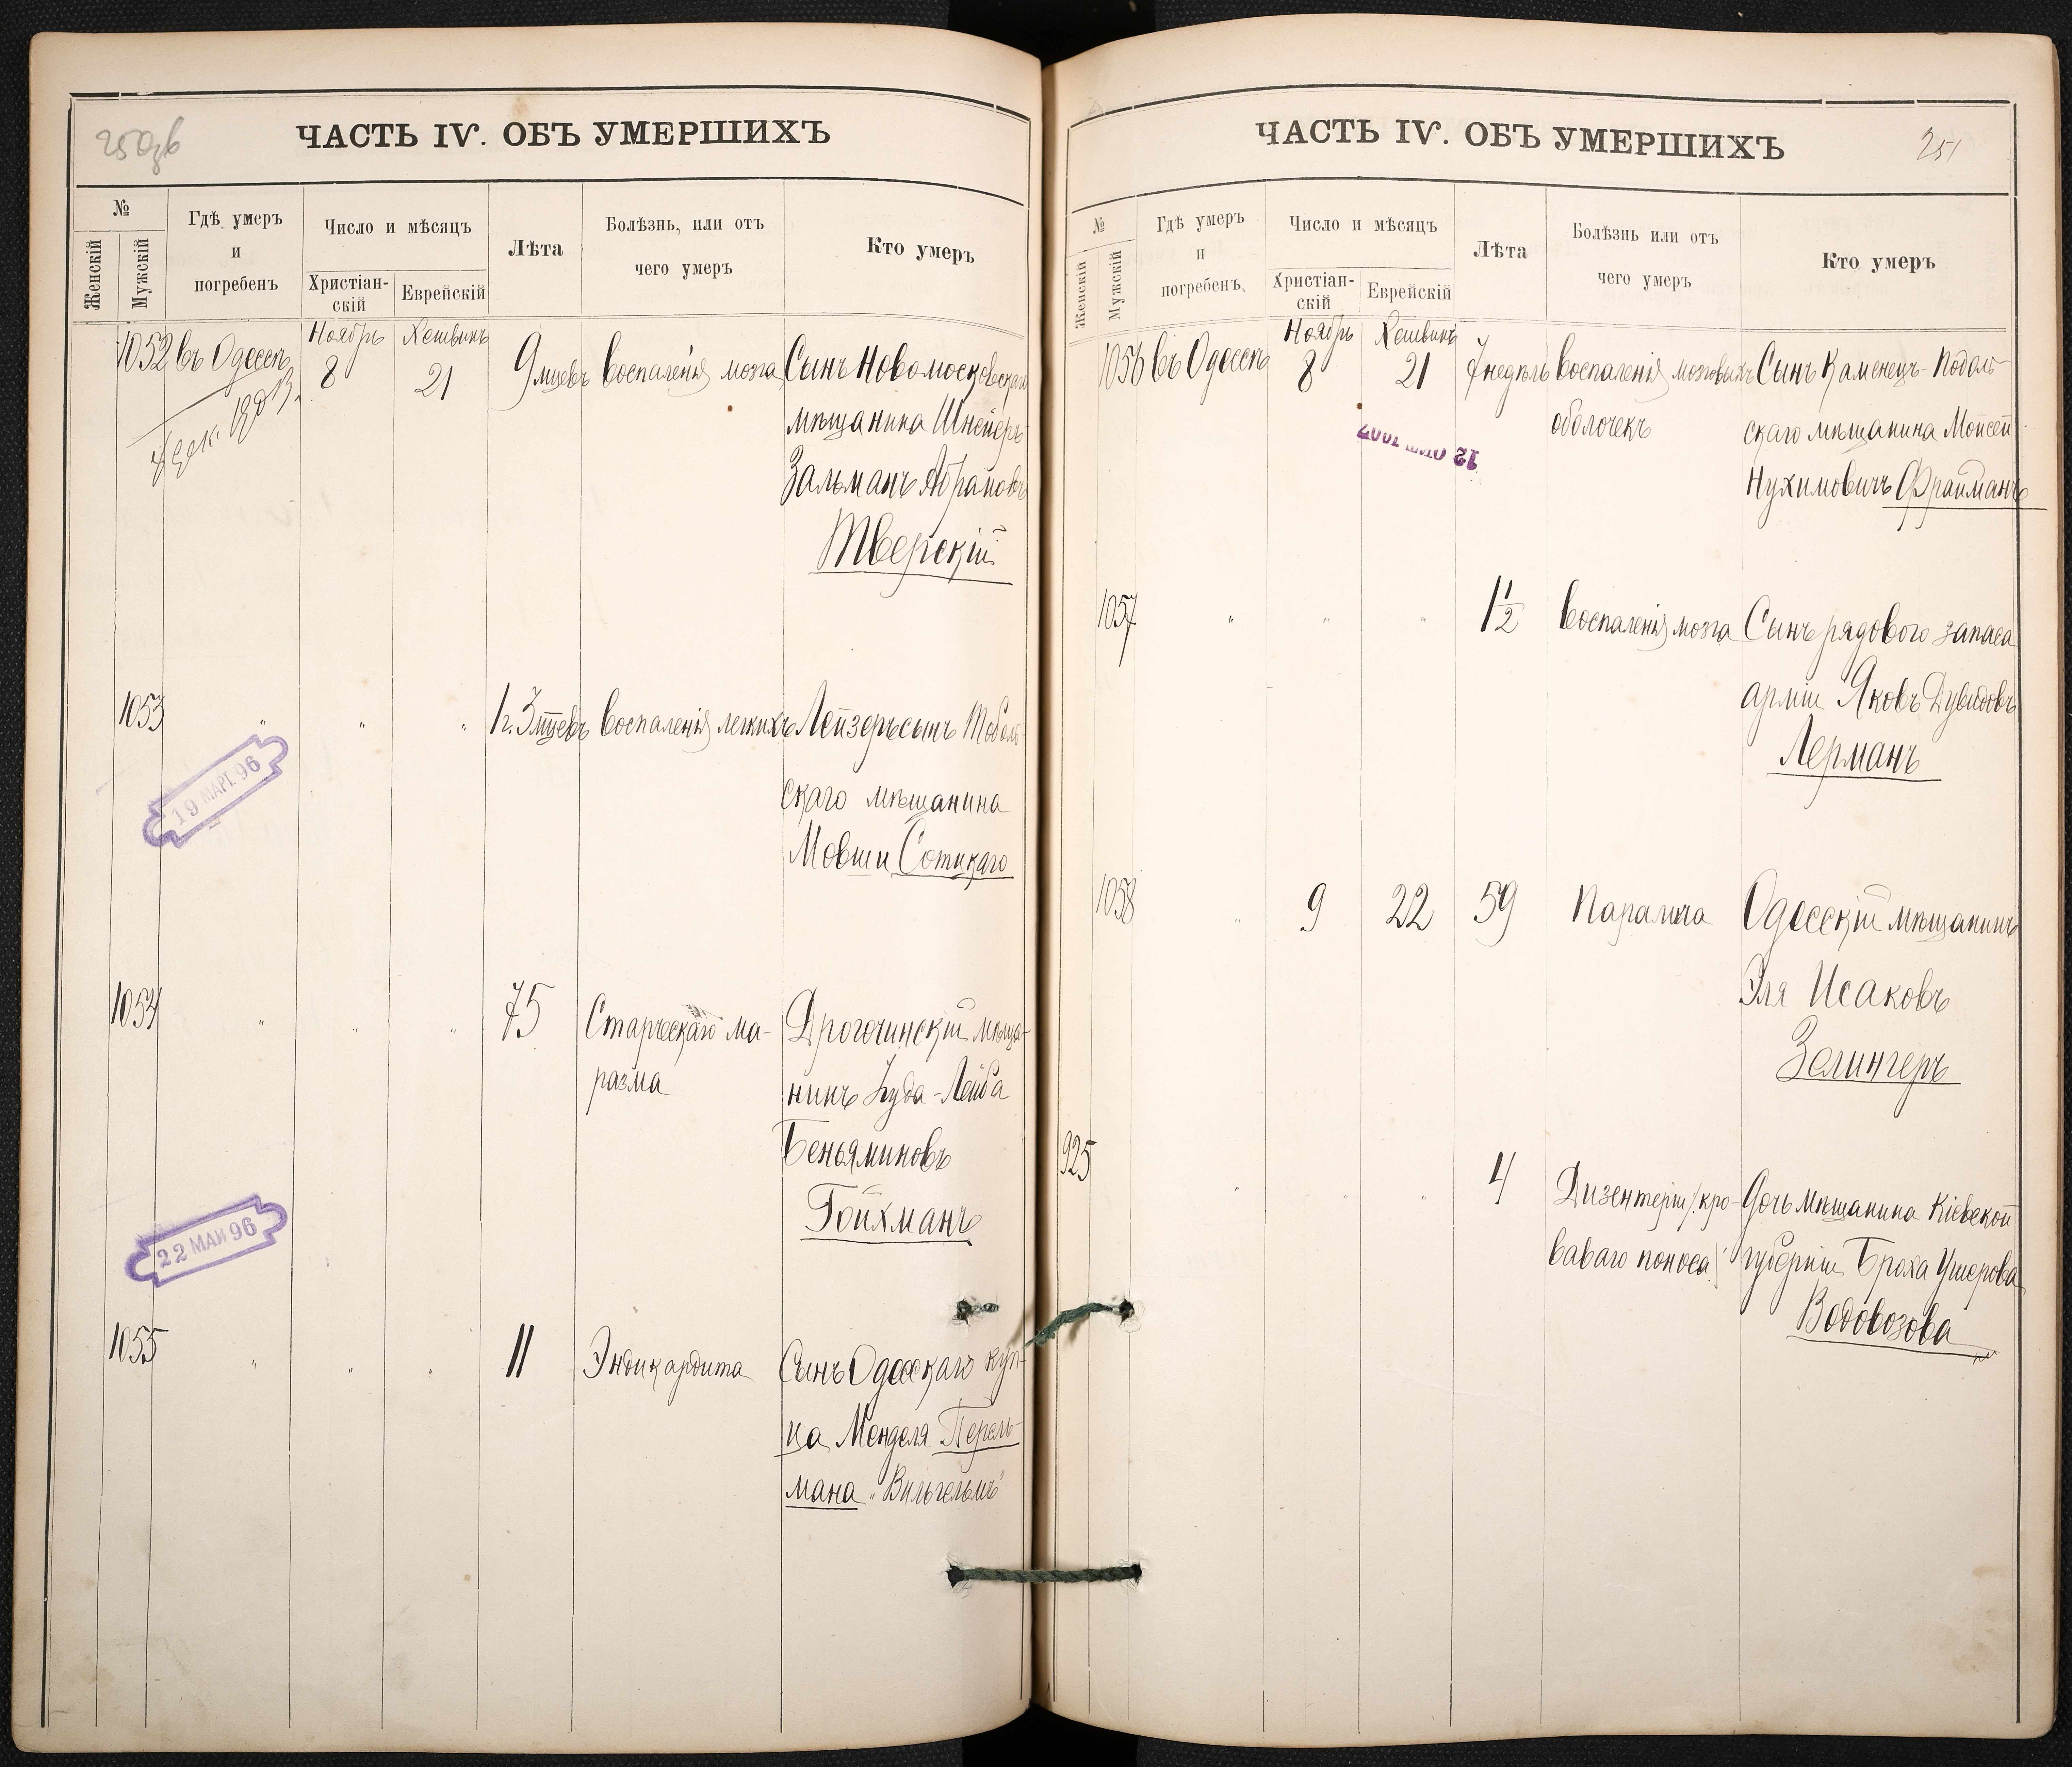 250 об
ЧАСТЬ IV. ОБЪ УМЕРШИХЪ
№
Женскій
Мужскій
Гдѣ умеръ
и
погребенъ
Число и мѣсяцъ
Христіан-
скій
Еврейскій
Лѣта
Болѣзнь, или отъ
чего умеръ
Кто умеръ
Ноябрь Хешвинъ
1052 въ Одессѣ 8 21 9 мцевъ воспаленія мозга Сынъ Новомосковскаго
мѣщанина Шнейеръ
Зальманъ Абрамовъ
Тверскій
1053 " " " 1 г. 3 мцевъ воспаленія легкихъ Лейзеръ сынъ Тоболь-
скаго мѣщанина
Мовши Сотикаго
19 МАРТ. 96
1054 " " " 75 Старческаго ма- Дрогочинскій мѣща-
разма нинъ Іуда-Лейба
Беньяминовъ
Гойхманъ
22 МАЙ 96
1055 " " " 11 Эндикардита Сынъ Одесскаго куп-
ца Менделя Перель-
мана "Вильгельмъ"
ЧАСТЬ IV. ОБЪ УМЕРШИХЪ
251
№
Женскій
Мужскій
Гдѣ умеръ
и
погребенъ
Число и мѣсяцъ
Христіан-
скій
Еврейскій
Лѣта
Болѣзнь или отъ
чего умеръ
Кто умеръ
Ноябрь Хешвинъ
1056 въ Одессѣ 8 21 7 недѣль воспаленія мозговыхъ Сынъ Каменецъ-Подоль-
оболочекъ скаго мѣщанина Мойсей
Нухимовичъ Фрайманъ
12
1057 " " " 1 1/2 воспаленія мозга Сынъ рядового запаса
арміи Яковъ Дувидовъ
Лерманъ
1058 " 9 22 59 Паралича Одесскій мѣщанинъ
Эля Исаковъ
Зелингеръ
925 " " " 4 Дизентеріи /кро- Дочь мѣщанина Кіевской
ваваго поноса/ губерніи Броха Ушерова
Водовозова